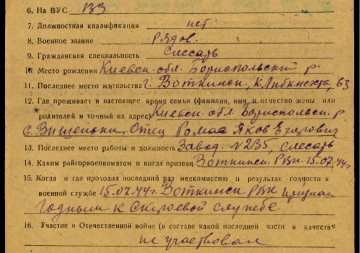 6. На ВУС 133
7. Должностная квалификация нет
8. Военное звание Рядов.
9. Гражданская специальность Слесарь
10. Место рождения Киевск. обл. Бориспольский р.
11. Последнее место жительства г. Воткинск, К. Либкнехта, 63
12. Где проживает в настоящее время семья (фамилия, имя и отчество жены или
родителей и точный их адрес) Киевск. обл. Бориспольск. р.
с. Вишеньки, Отец Ромаа Яков Егорович
13. Последнее место работы и должность Завод №235, слесарь
14. Каким райгорвоенкоматом и когда призван Воткинск. РВК. 15.07.44г.
15. Когда и где проходил последний раз медкомиссию и результат годности к
военной службе 15.07.44г. Воткинск РВК признан
Годным к строевой службе
16. Участие в Отечественной войне (в составе какой последней части и в качестве
не участвовал